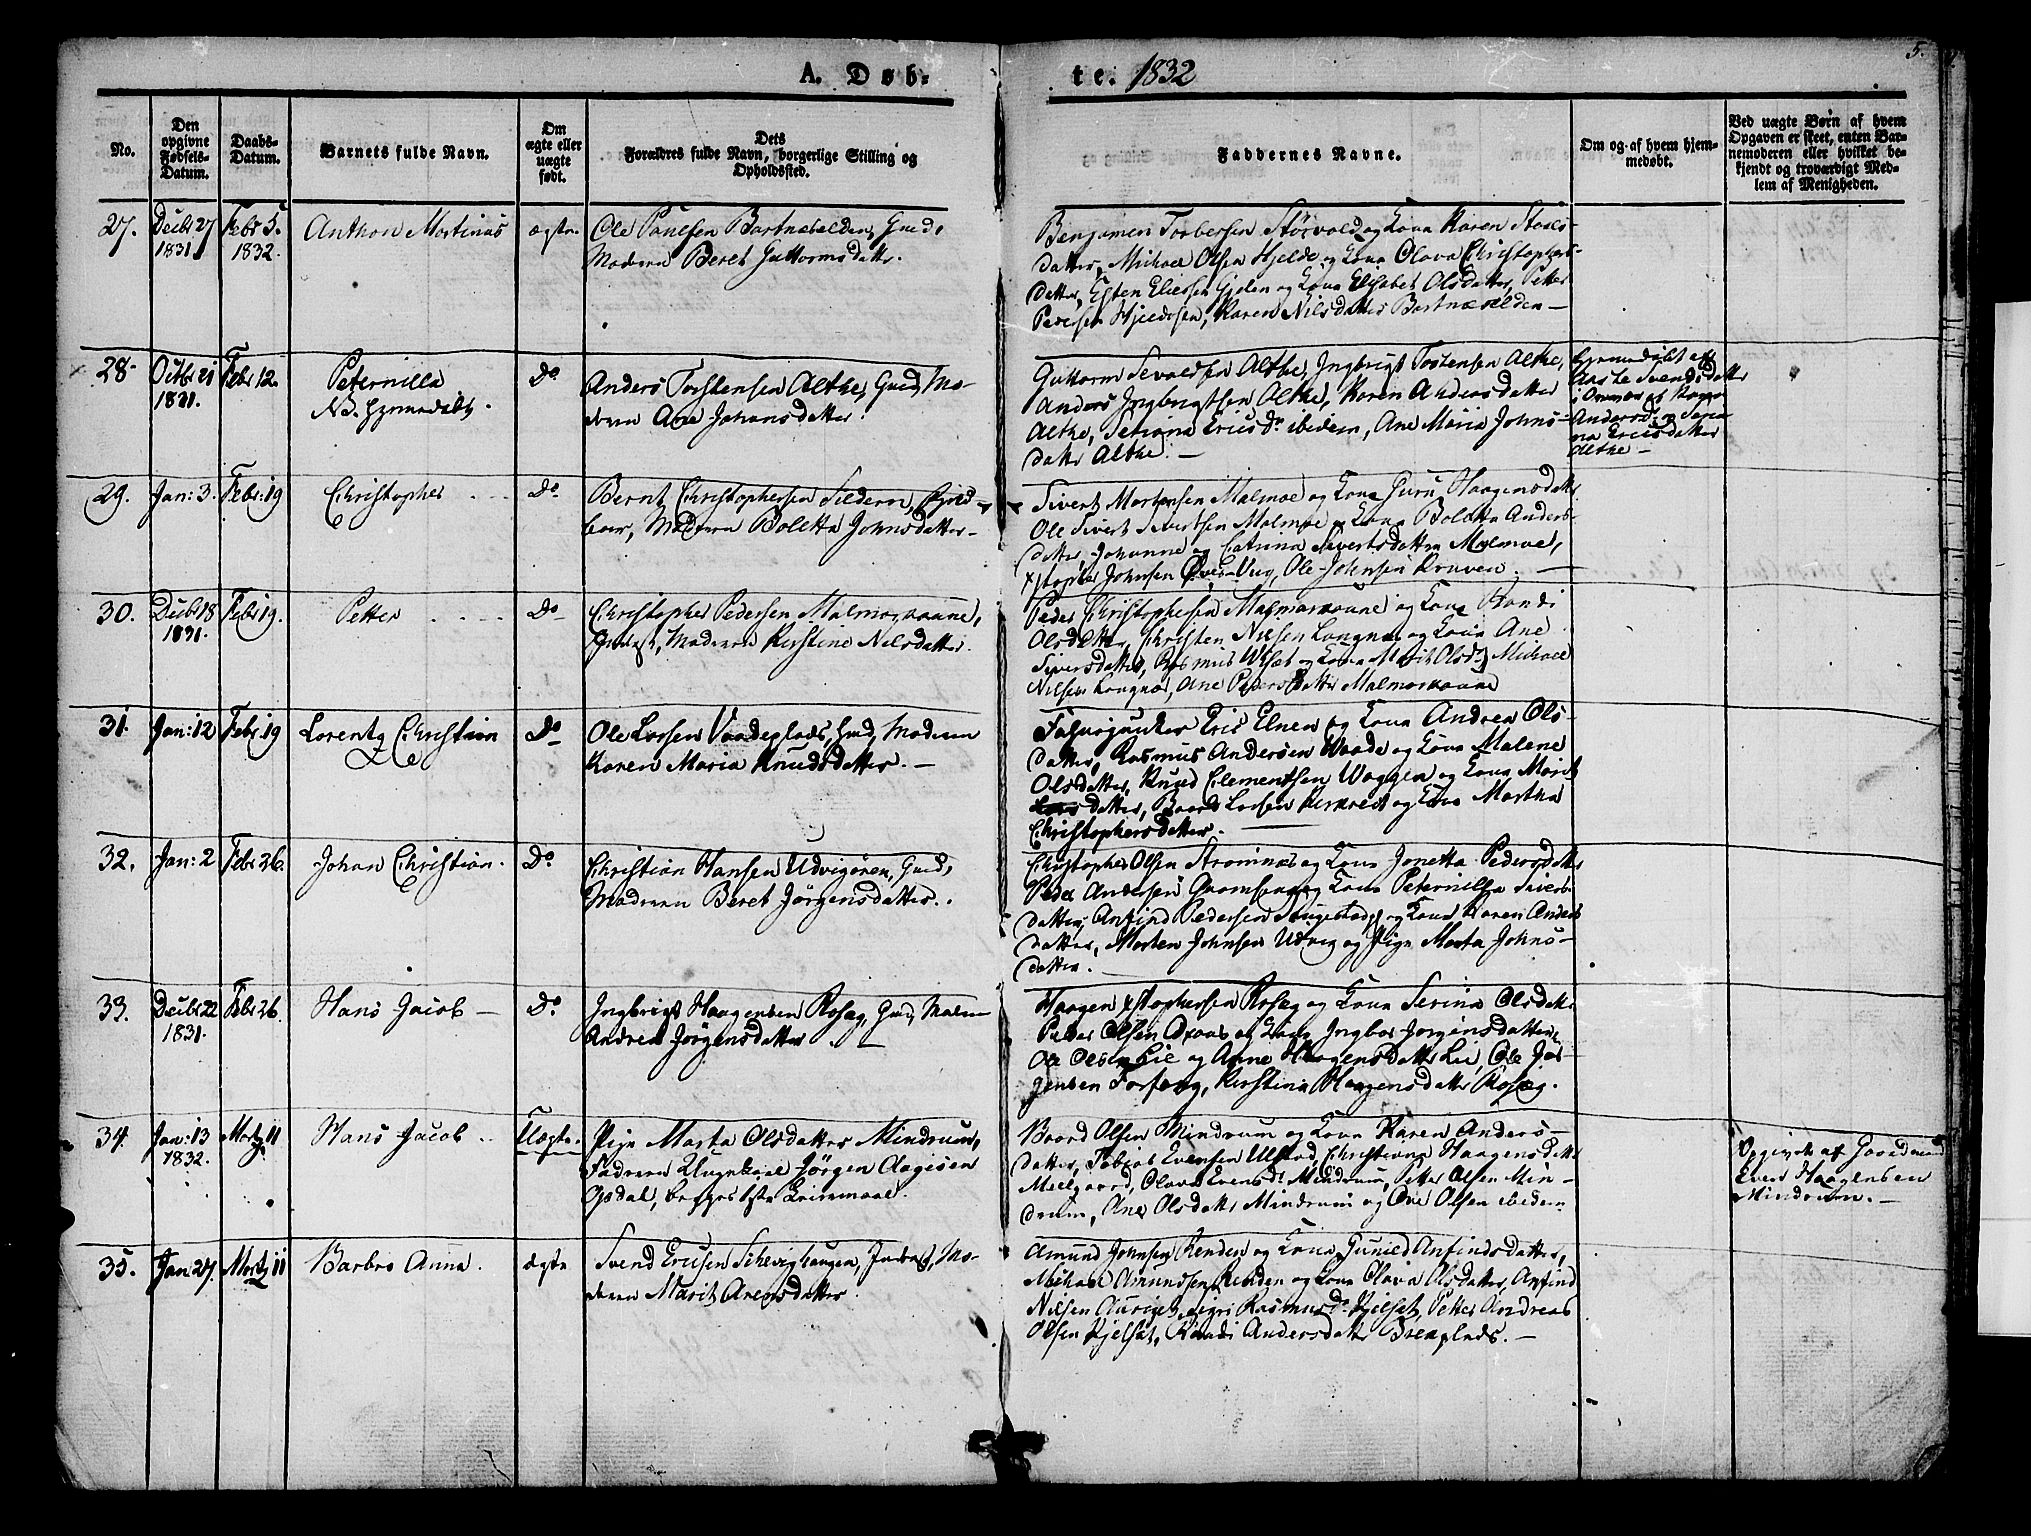 A. Døb-
te. 1832
5.
No.
Den opgivne Fødsels-Datum.
Daabs-Datum.
Barnets fulde Navn.
Om ægte eller uægte født.
Dets Forældres fulde Navn, borgerlige Stilling og Opholdssted.
Faddernes Navne.
Om og af hvem hjemmedøbt.
Ved uægte Børn af hvem Opgaven er skeet, enten Barnemoderen eller hvilket bekjendt og troværdigt Medlem af Menigheden.
27. Decbr 27 Febr 5. Anthon Martinus ægte Ole Paulsen
1831 1832. Moderen Beret Guttormsdatter.
Benjamin Torbersen og Kona Karen
datter, Michael Olsen Hjelde og Kona Olava Christophers-
datter, Esten Eliesen Gjelen og Kona Elisabet Olsdatter, Petter
Pedersen Karen Nilsdatter
28. Octbr 21 Febr 12. Peternilla Do Anders Torstensen Althe, Gmd, Mo-
1831. NB. Hjemmedøbt. deren Ane Johansdatter.
Guttorm Sevaldsen Althe, Ingbrigt Tostensen Althe,
Anders Ingbrigtsen Althe, Karen Andersdatter
Althe, Seriana Ericsdr ibidem, Ane Maria Johns-
datter Althe. —
Hjemmedøbt af
Svendsdatter
Andersd: og Seria
na Ericsdatter
Althe —
29. Jan: 3. Febr: 19 Christopher Do Bernt Christophersen
Moderen Boletta Johnsdatter —
Sivert Mortensen Malmoe og Kona Guru Haagensdatter
Ole Sivert Sivertsen Malmoe og Kona Boletta Anders-
datter, Johanna og Catrina Sivertsdatter Malmoe,
Xstopher Johnsen Ole Johnsen —
30. Decbr 18 Febr 19. Petter Do Christopher Pedersen
1831. Moderen Kirstine Nilsdatter.
Peder Christophersen og Kona Randi
Olsdatter, Christen Nilsen Langnæs og Kona Ane
Siversdatter, Rasmus og Kona Marit Olsd, Michael
Nilsen Langnæs, Ane Pedersdatter
31. Jan: 12 Febr 19 Lorentz Christian Do Ole Larsen Vaadeplads, Gmd, Moderen
Karen Maria Knudsdatter. —
Eric Elnen og Kona Andrea Ols-
datter, Rasmus Andersen Waade og Kona Malene
Olsdatter, Knud Clementsen Waggen og Kona Marit
datter, Baard Larsen og Kona Martha
Christophersdatter. —
32. Jan: 2 Febr 26. Johan Christian. Do Christian Hansen Udvigøren, Gmd,
Moderen Beret Jørgensdatter.
Christopher Olsen Strømnæs og Kona Jonetta Pedersdatter
Peder Andersen og Kona Peternilla Sivers-
datter, Anfind Pedersen og Kona Karen Anders
datter, Morten Johnsen Udvig og Pige Marta Johns-
datter.
33. Decbr 22 Febr 26. Hans Jacob — Do Ingbrigt Haagensen Rosæg, Gmd, Moderen
1831. Andrea Jørgensdatter. —
Haagen Xstophersen Rosæg og Kona Serina Olsdatter
Peder Olsen og Kona Ingbor Jørgensdatter,
Ole Olsen Lie og Anne Haagensdatter Lie, Ole Jør-
gensen Kirstina Haagensdatter Rosæg.
34. Jan: 13 Martz 11 Hans Jacob Uægte. Pige Marta Olsdatter Mindrum,
1832. Faderen Ungkarl Jørgen Aagesen
Opdal, begges 1ste Leiermaal.
Baard Olsen Mindrum og Kona Karen Anders-
datter, Tobias Evensen Ulstad, Christiana Haagensdatter
Melgaard, Olava Evensd: Mindrum, Petter Olsen Min-
drum, Ane Olsdatter Mindrum og Ove Olsen ibidem
Opgivet af Gaardmand
Even Haagensen
Mindrum. —
35. Jan: 27. Martz 11 Barbro Anna. ægte Svend Ericsen Mo-
deren Marit Arensdatter.
Amund Johnsen Renden og Kona Gunild Anfindsdatter,
Michael Amundsen Renden og Kona Olava Olsdatter, Anfind
Nilsen Sigri Rasmusdr Kjelset, Petter Andreas
Olsen Kjelset, Randi Andersdatter —